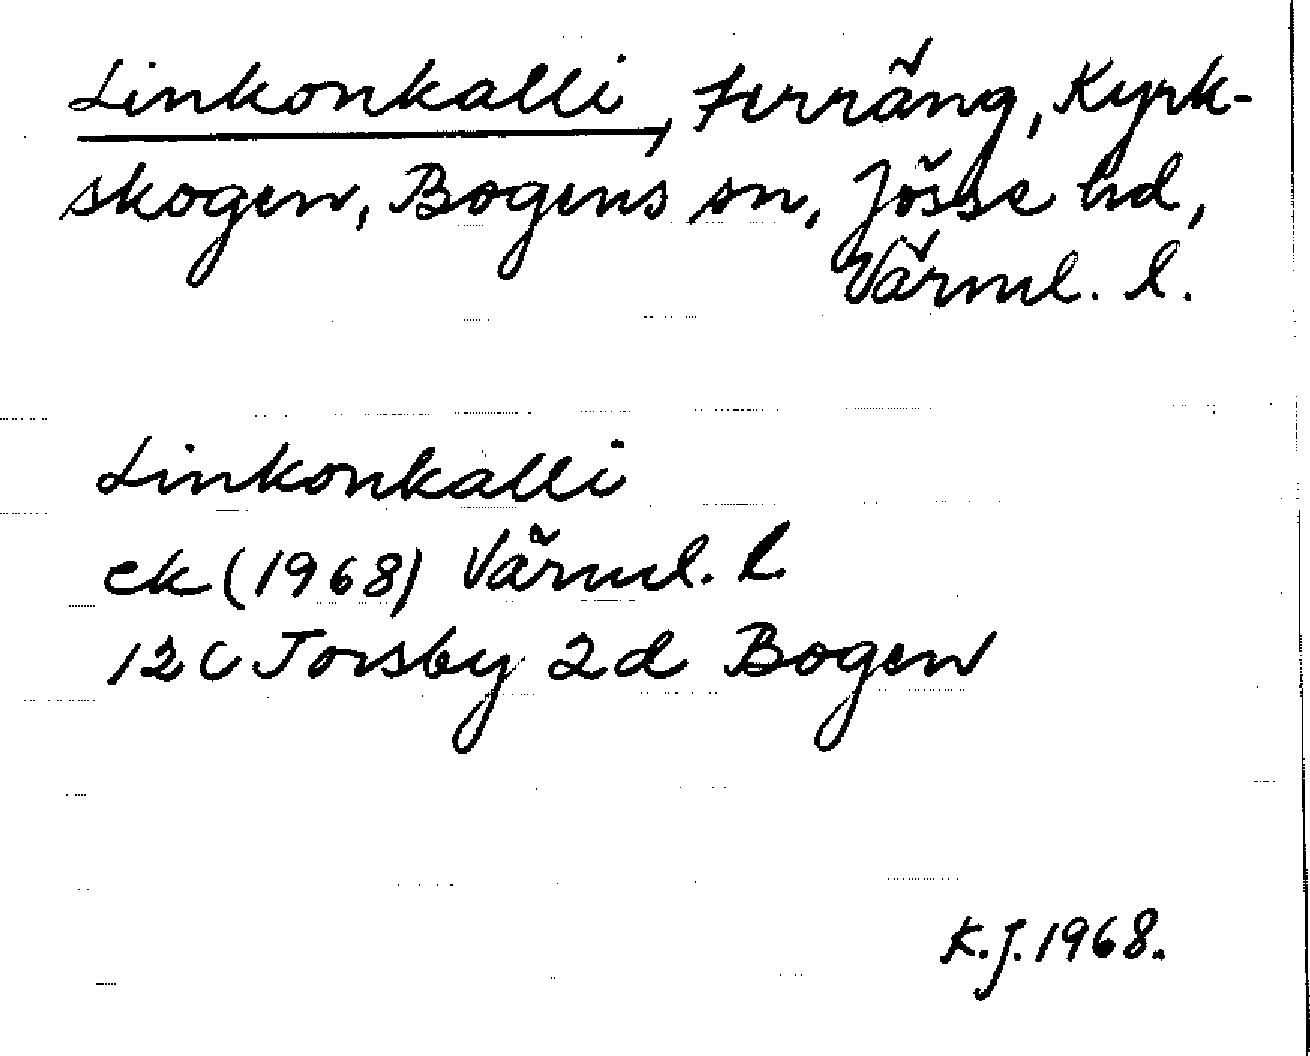 Linkonkalli, Terräng, Kyrk-
skogen, Bogens sn, Jösse hd,
Värml. l.
Linkonkalli
ek (1968) Värml. l.
12 C Torsby 2d Bogen
K.J. 1968.